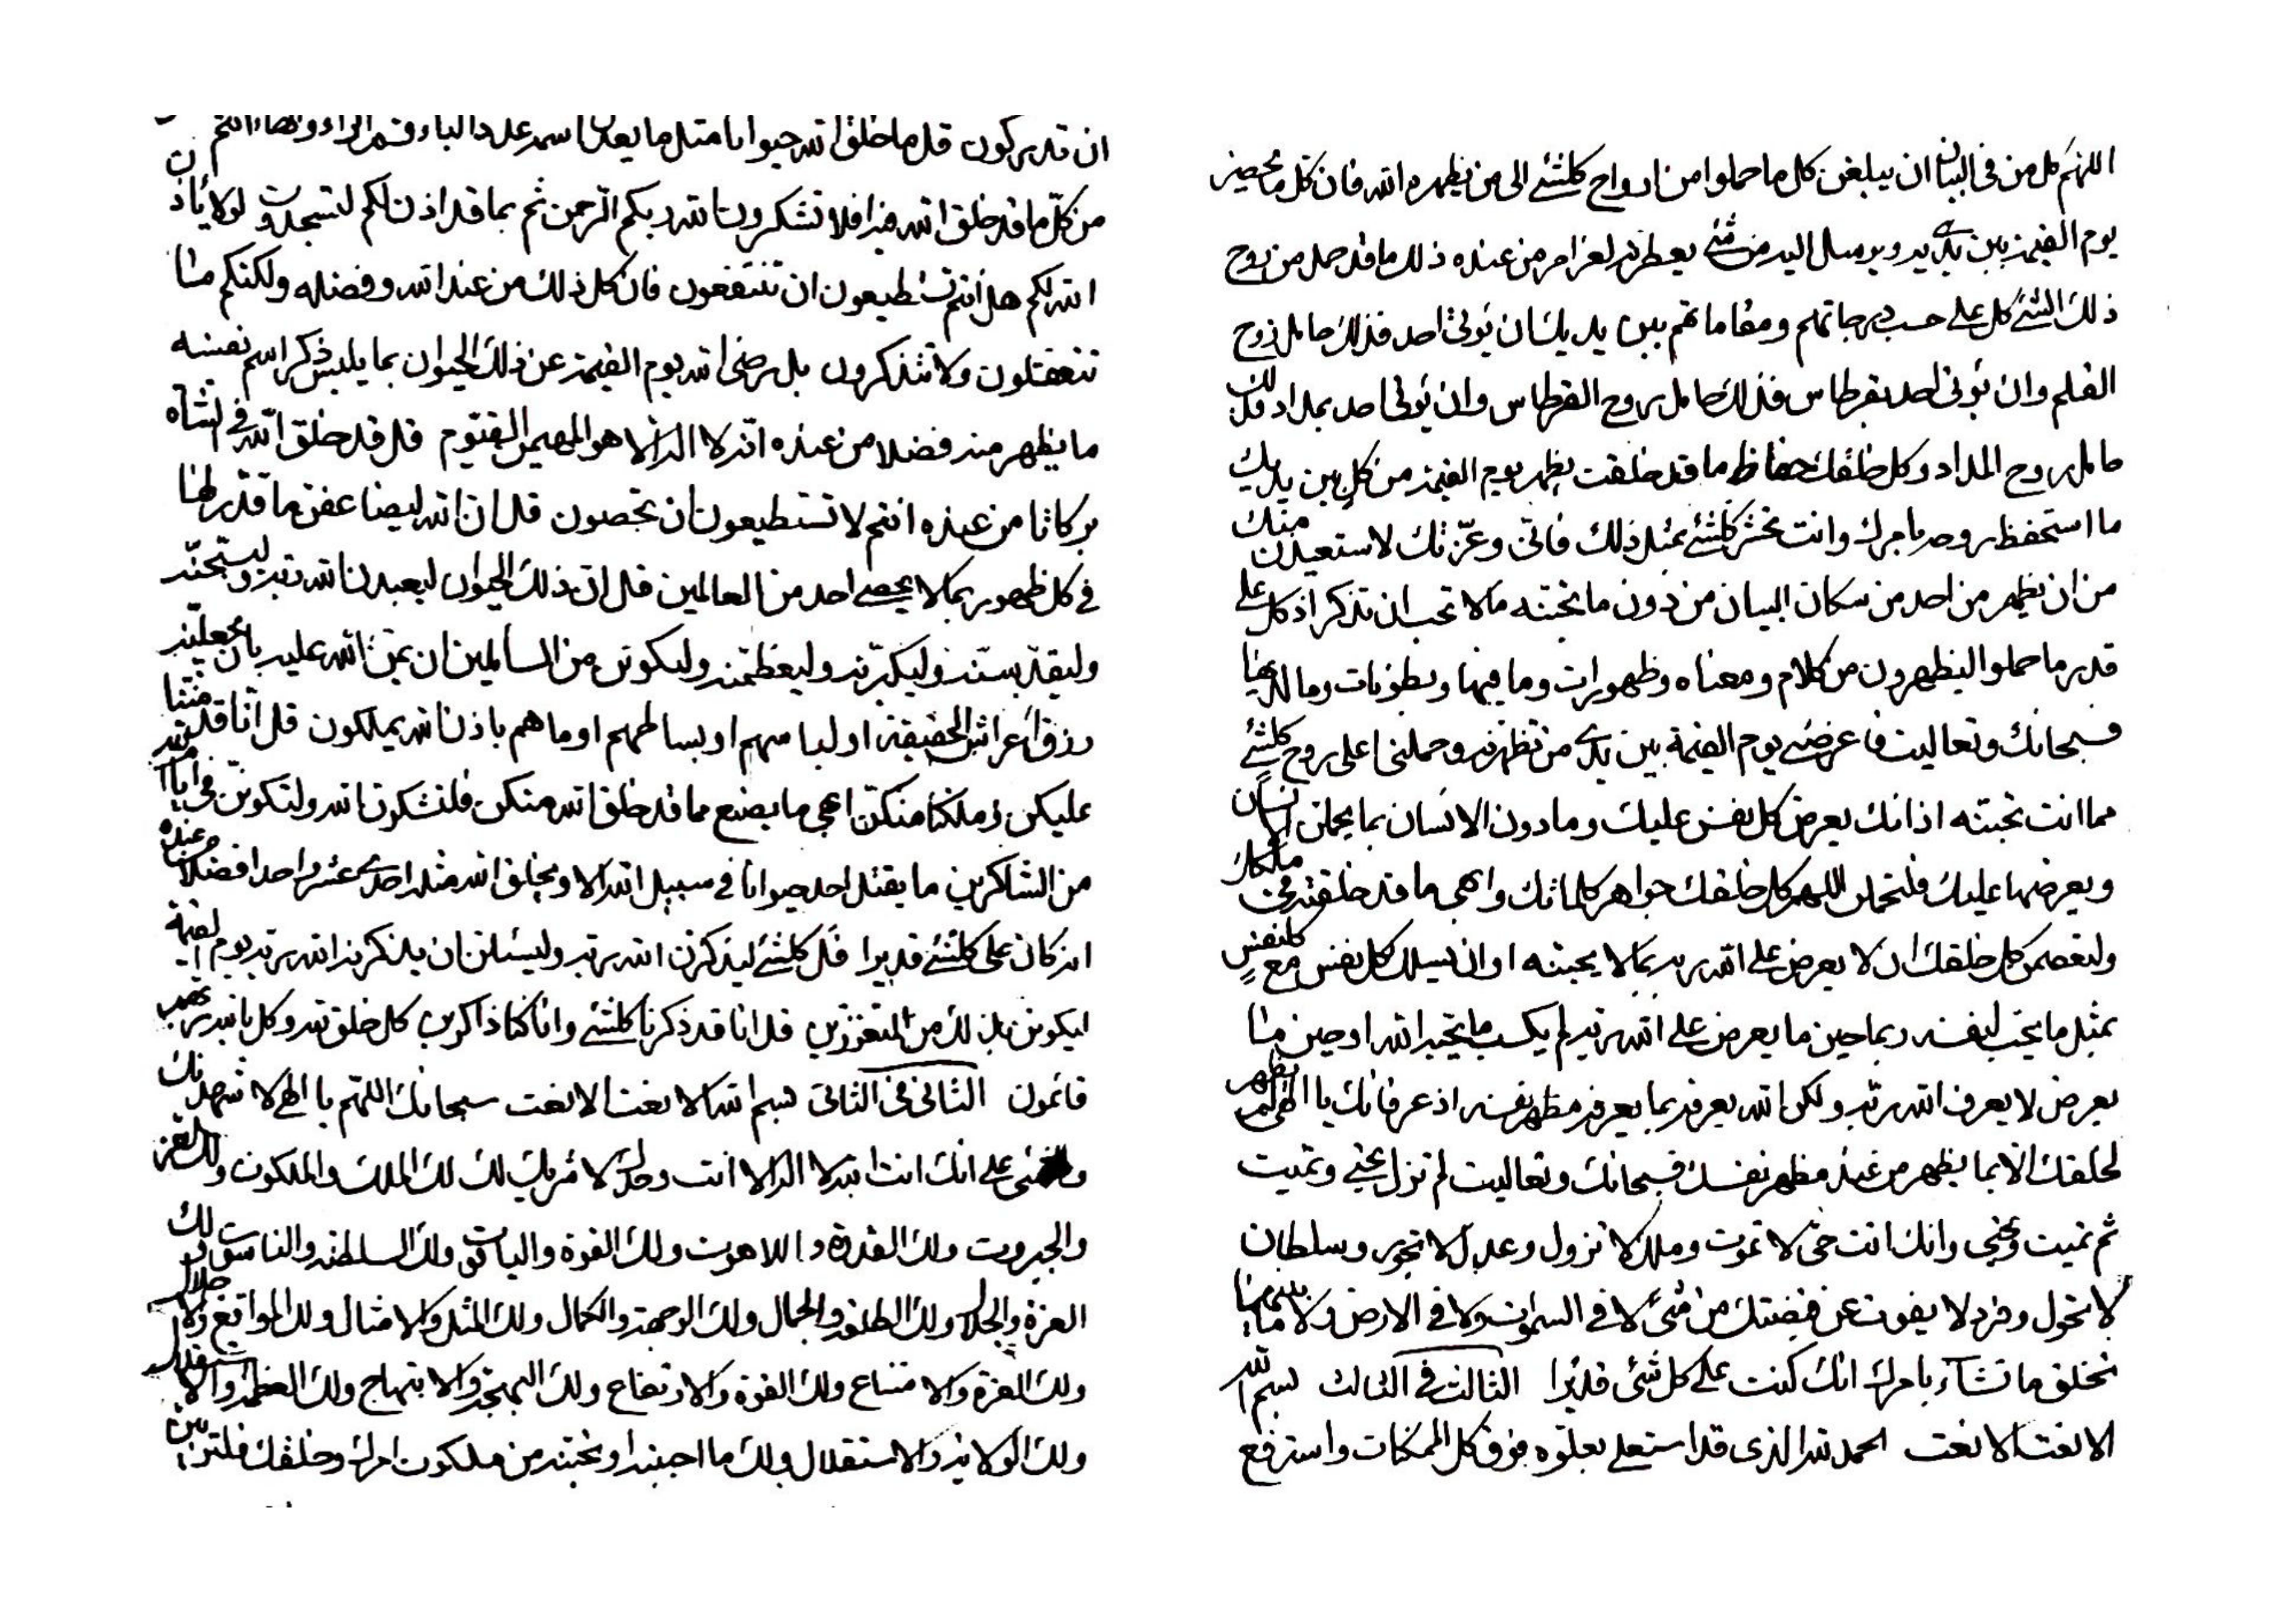 اللهم كل من فى البيان ان يبلغن كل ما حملوا من ارواح كلشئ الى من يظهره الله فان كل ما يحضر
يوم القيمة بين يديه ويرسل اليه من شئ يعطرنه لعز امر من عنده ذلك ما قد حمل من روح
ذلك الشئ كل على حسب درجاتهم ومقاماتهم بين يديك ان يؤتى احد فذلك حامل روح
القلم وان يؤتى احد بقرطاس فذلك حامل روح القرطاس وان يؤتى احد بمداد فذلك
حامل روح المداد وكل خلقك حفاظ ما قد خلقت يظهر يوم القيمة من كل بين يديك
ما استحفظ روحه بامرك وانت تحشر كلشئ بمثل ذلك فانى وعزتك لاستعيذن منك
من ان يظهر من احد من سكان البيان من دون ما تحبنه ما لا تحب ان تذكر اذ كل على
قدر ما حملوا ليظهرون من كلام ومعناه وظهورات وما فيها وبطونات وما لديها
فسبحانك وتعاليت فاعرضنى يوم القيمة بين يدى من تظهرنه وحملنى اعلى روح كلشئ
مما انت تحبنه اذ انك يعرض كل نفس عليك وما دون الانسان بما يحملن الانسان
ويعرضها عليك فلتحملن اللهم كل خلقك جواهر كلماتك وابهى ما قد خلقته فى ملكك
ولتعصمن كل خلقك ان لا يعرض على الله ربه بما لا يحبنه او ان يسلك كل نفس مع كلنفس
بمثل ما يحب لنفسه ربما حين ما يعرض على الله ربه لم يكسب ما يحبه الله او حين ما
يعرض لا يعرف الله ربه ولكن الله يعرفه بما يعرفه مظهر نفسه اذ عرفانك يا الهى لم يظهر
لخلقك الا بما يظهر من عند مظهر نفسك فسبحانك وتعاليت لم تزل تحيى وتميت
ثم تميت وتحيى وانك انت حى لا تموت وملك لا تزول وعدل لا تجور وسلطان
لا تحول وفرد لا يفوت عن قبضتك من شئ لا فى السموات ولا فى الارض ولا ما بينهما
تخلق ما تشآء بامرك انك كنت على كل شئ قديرا الثالث فى الثالث بسم الله
الانعت الانعت الحمد لله الذى قد استعلى بعلوه فوق كل الممكنات واسترفع
ان قد يركون قل ما خلق الله حيوانا مثل ما يعدل اسمه عدد الباء
من كل ما قد خلق الله فيه افلا تشكرون الله ربكم الرحمن ثم بما قد اذن لكم لتسجدون لولا ياذن
الله لكم هل انتم تستطيعون ان تنتفعون فان كل ذلك من عند الله وفضله ولكنكم ما
تتعقلون ولا تتذكرون بل رضى الله يوم القيمة عن ذلك الحيوان بما يلبس ذكر اسم نفسه
ما يظهر منه فضلا من عنده انه لا اله الا هو المهيمن القيوم قل قد خلق الله فى الشاة
بركاتا من عنده انتم لا تستطيعون ان تحصون قل ان الله ليضاعفن ما قدر لها
فى كل ظهور بما لا يحصى احد من العالمين قل ان ذلك الحيوان ليعبدن الله ربه وليسبحنه
وليقدسنه وليكبرنه وليعظمنه وليكونن من السائلين ان يمن الله عليه بان يجعلنه
رزق اعراش الحقيقة او لباسهم او بساطهم او ما هم باذن الله يملكون قل انا قد مننا
عليكن وملكنا منكن ابهى ما يصنع مما قد خلق الله منكن فلتشكرن الله ولتكونن فى ايام الله
من الشاكرين ما يقتل احد حيوانا فى سبيل الله الا ويخلق الله مثله احدى عشر واحدا فضلا من عنده
انه كان على كلشئ قديرا قل كلشئ ليذكرن الله ربه وليسئلن ان يذكرنه الله ربه يوم القيمة
ليكونن بذلك من المتعززين قل انا قد ذكرنا كلشئ وانا كنا ذاكرين كل خلق لله وكل بالله ربهم
قائمون الثانى فى الثانى بسم الله الانعت الانعت سبحانك اللهم يا الهى لاشهدنك
وكلشئ على انك انت الله لا اله الا انت وحدك لا شريك لك لك الملك والملكوت ولك العز
والجبروت ولك القدرة واللاهوت ولك القوة والياقوت ولك السلطنة والناسوت ولك
العزة والجلال ولك الطلعة والجمال ولك الوجهة والكمال ولك المثل والامثال ولك المواقع والاجلال
ولك العزة والامتناع ولك القوة والارتفاع ولك البهجة والابتهاج ولك العظمة والاستقلال
ولك الولاية والاستقلال ولك ما احببته او تحبنه من ملكوت امرك وخلقك فلتربين